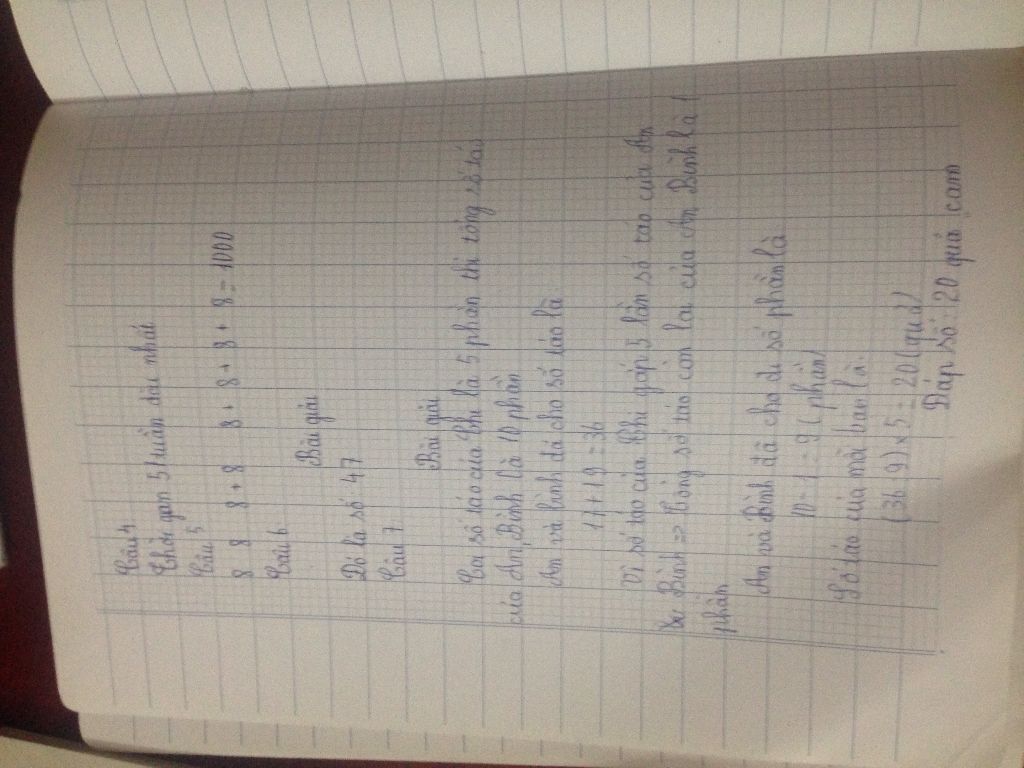 Câu 4
Thời gan 51 tuần dài nhất
Câu 5
8 8 8 + 8 8 + 8 + 8 + 8 = 1000
Câu 6
Bài giải
Đó la số 47
Câu 7
Bài giải
Coi số táo của Chi là 5 phần thì tổng số táo
của An, Bình là 10 phần
An và bình đã cho số táo là:
17 + 19 = 36
Vì số táo của Chi gấp 5 lần số táo của An
Bình => Tổng số táo còn lại của An Bình là 1
phần
An và Bình đã cho đi số phần là
10 - 1 = 9 (phần)
Số táo của mỗi bạn là:
(36 : 9) x 5 = 20 (quả)
Đáp số: 20 quả cam